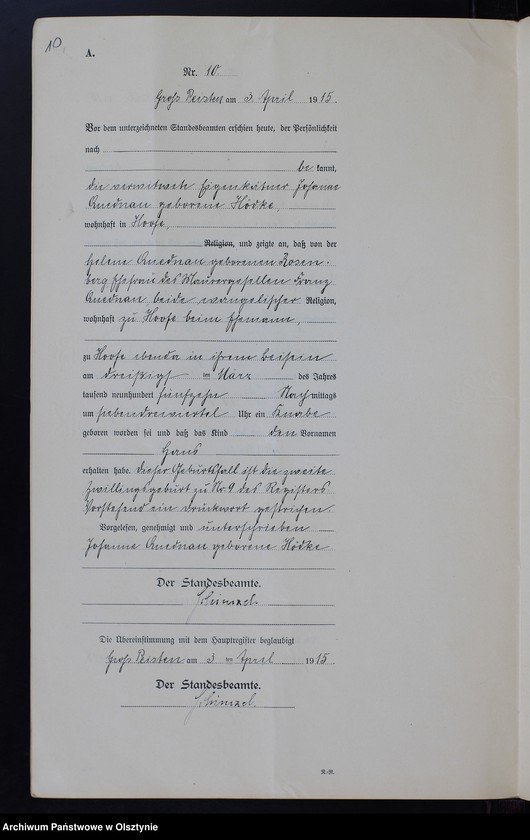 10
A.
Nr. 10
Groß Peisten am 3. April 1915.
Vor dem unterzeichneten Standesbeamten erschien heute, der Persönlichkeit
nach
be kannt,
die verwitwete Eigenkätner Johanne
Quednau geborene Hödke,
wohnhaft in Hoofe,
Religion, und zeigte an, daß von der
Helene Quednau geborenen Rosen-
berg Ehefrau des Maurergesellen Franz
Quednau, beide evangelischer Religion,
wohnhaft zu Hoofe beim Ehemann,
zu Hoofe ebenda in ihrem Beisein
am dreißigst en März des Jahres
tausend neunhundert fünfzehn Nach mittags
um siebendreiviertel Uhr ein Knabe
geboren worden sei und daß das Kind den Vornamen
Hans
erhalten habe. Dieser Geburtsfall ist die zweite
Zwillingsgeburt zu Nr 9 des Registers
Vorstehend ein Druckwort gestrichen.
Vorgelesen, genehmigt und unterschrieben
Johanne Quednau geborene Hödke
Der Standesbeamte.
Die Übereinstimmung mit dem Hauptregister beglaubigt
Groß Peisten am 3 ten April 1915.
Der Standesbeamte.
Archiwum Państwowe w Olsztynie